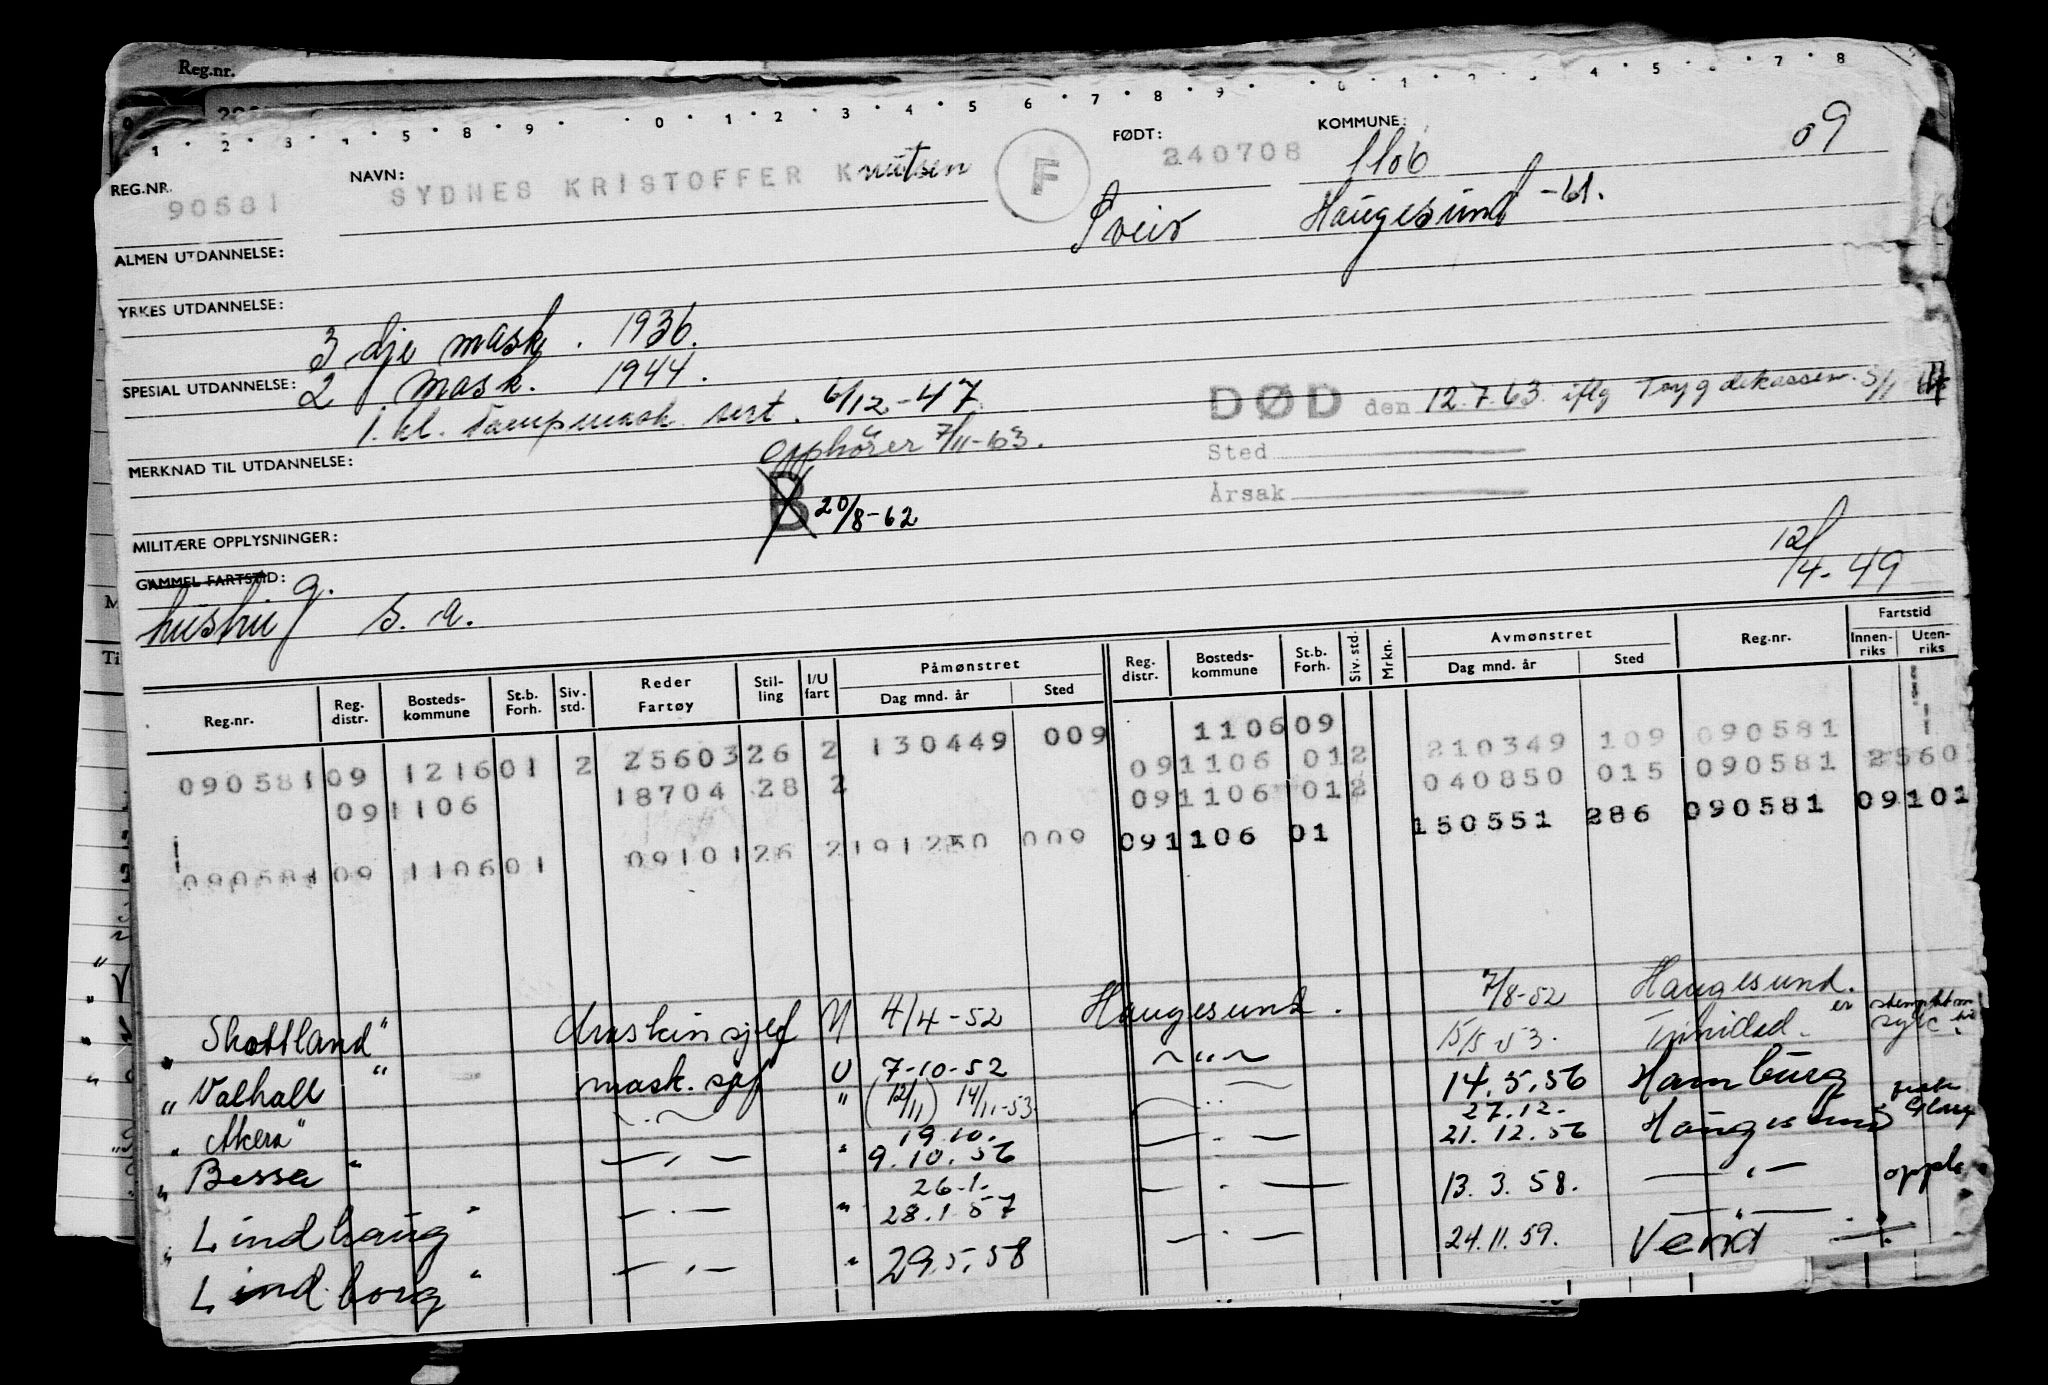 Reg.nr.
REG.NR. 90581
NAVN: SYDNES KRISTOFFER Knutsen
F
FØDT: 240708
KOMMUNE: 1106
09
Sveio Haugesund -61.
ALMEN UTDANNELSE:
YRKES UTDANNELSE:
3 dje mask. 1936.
SPESIAL UTDANNELSE: 2 mask. 1944.
1. kl. Dampmask. sert. 6/12-47
DØD den 12.7.63 iflg Trygdekassen
MERKNAD TIL UTDANNELSE:
opphører 7/11-63.
Sted
B 20/8-62
Årsak
MILITÆRE OPPLYSNINGER:
GAMMEL FARTSTID: g.
s. a.
12/4-49
Reg.nr. Reg. distr. Bosteds-kommune St.b. Forh. Siv. std. Reder Fartøy Stil-ling I/U fart Påmønstret Dag mnd. år Sted Reg. distr. Bosteds-kommune St.b. Forh. Siv. std. Mrkn. Avmønstret Dag mnd. år Sted Reg.nr. Fartstid Innen-riks Uten-riks
110609
090581 09 1216 01 2 25603 26 2 130449 009 091106 01 2 210349 109 090581
091106 18704 28 2 091106 01 2 040850 015 090581 2560
090581 09 1106 01 09101 26 2 191250 009 091106 01 150551 286 090581 09101
" Skottland" Maskinsjef U 4/4-52 Haugesund. 7/8-52 Haugesund.
" Valhall " mask. sjef U 7-10-52 —"— 15/5 53. Trinidad.
" Akera" " (12/11) 14/11-53 14.5.56 Hamburg
" Bessa " — " — " 19.10. 9.10.56 — " — 27.12. 21.12.56 Haugesund
" Lindhaug " — " — " 26.1. 28.1.57 — " — 13.3.58. — " — oppl.
" Lindborg " — " — " 29.5.58 — " — 24.11.59. Vend